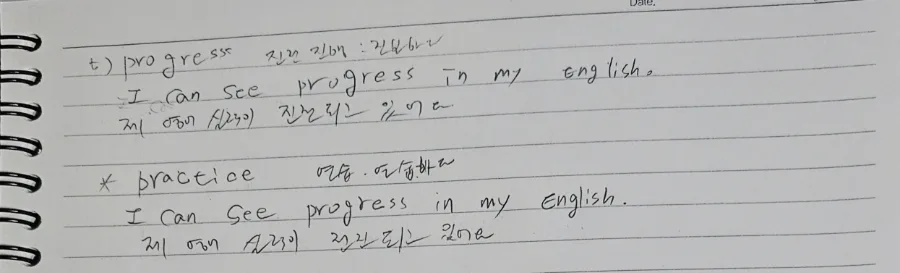 Date.
t) progress 진전 진행 : 진보하다
I can see progress in my English.
제 영어 실력이 진전되고 있어요
* practice 연습. 연습하다
I can see progress in my English.
제 영어 실력이 진전되고 있어요